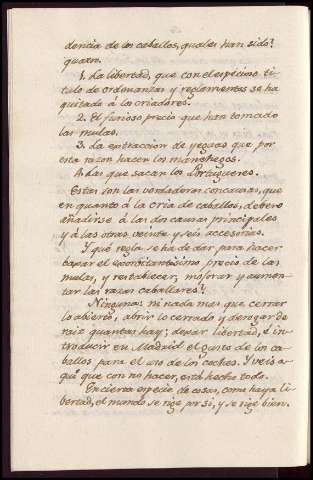 dencia de los caballos, quales han sido?
quatro.
1. La libertad, que con el especioso ti-
tulo de ordenanzas y reglamentos se ha
quitado á los criadores.
2. El furioso precio que han tomado
las mulas.
3. La extraccion de yeguas que por
esta razon hacen los manchegos.
4. Las que sacan los Portugueses.
Estas son las verdaderas concausas, que
en quanto á la cria de caballos, debere
añadirse á las dos causas principales
y á las otras veinte y seis accesorias.
Y qué regla se há de dar para hacer
baxar el exorbitantisimo precio de las
mulas, y restablecer, mejorar y aumen-
tar las razas caballares?
Ninguna: ni nada mas que cerrar
lo abierto, abrir lo cerrado y derogar de
raiz quanto hay; dexar libertad, é in-
troducir en Madrid el gusto de los ca-
ballos para el uso de los coches. Y veis a-
quí que con no hacer, está hecho todo.
En cierta especie de cosas, como haya li-
bertad, el mundo se rige por sí, y se rige bien.